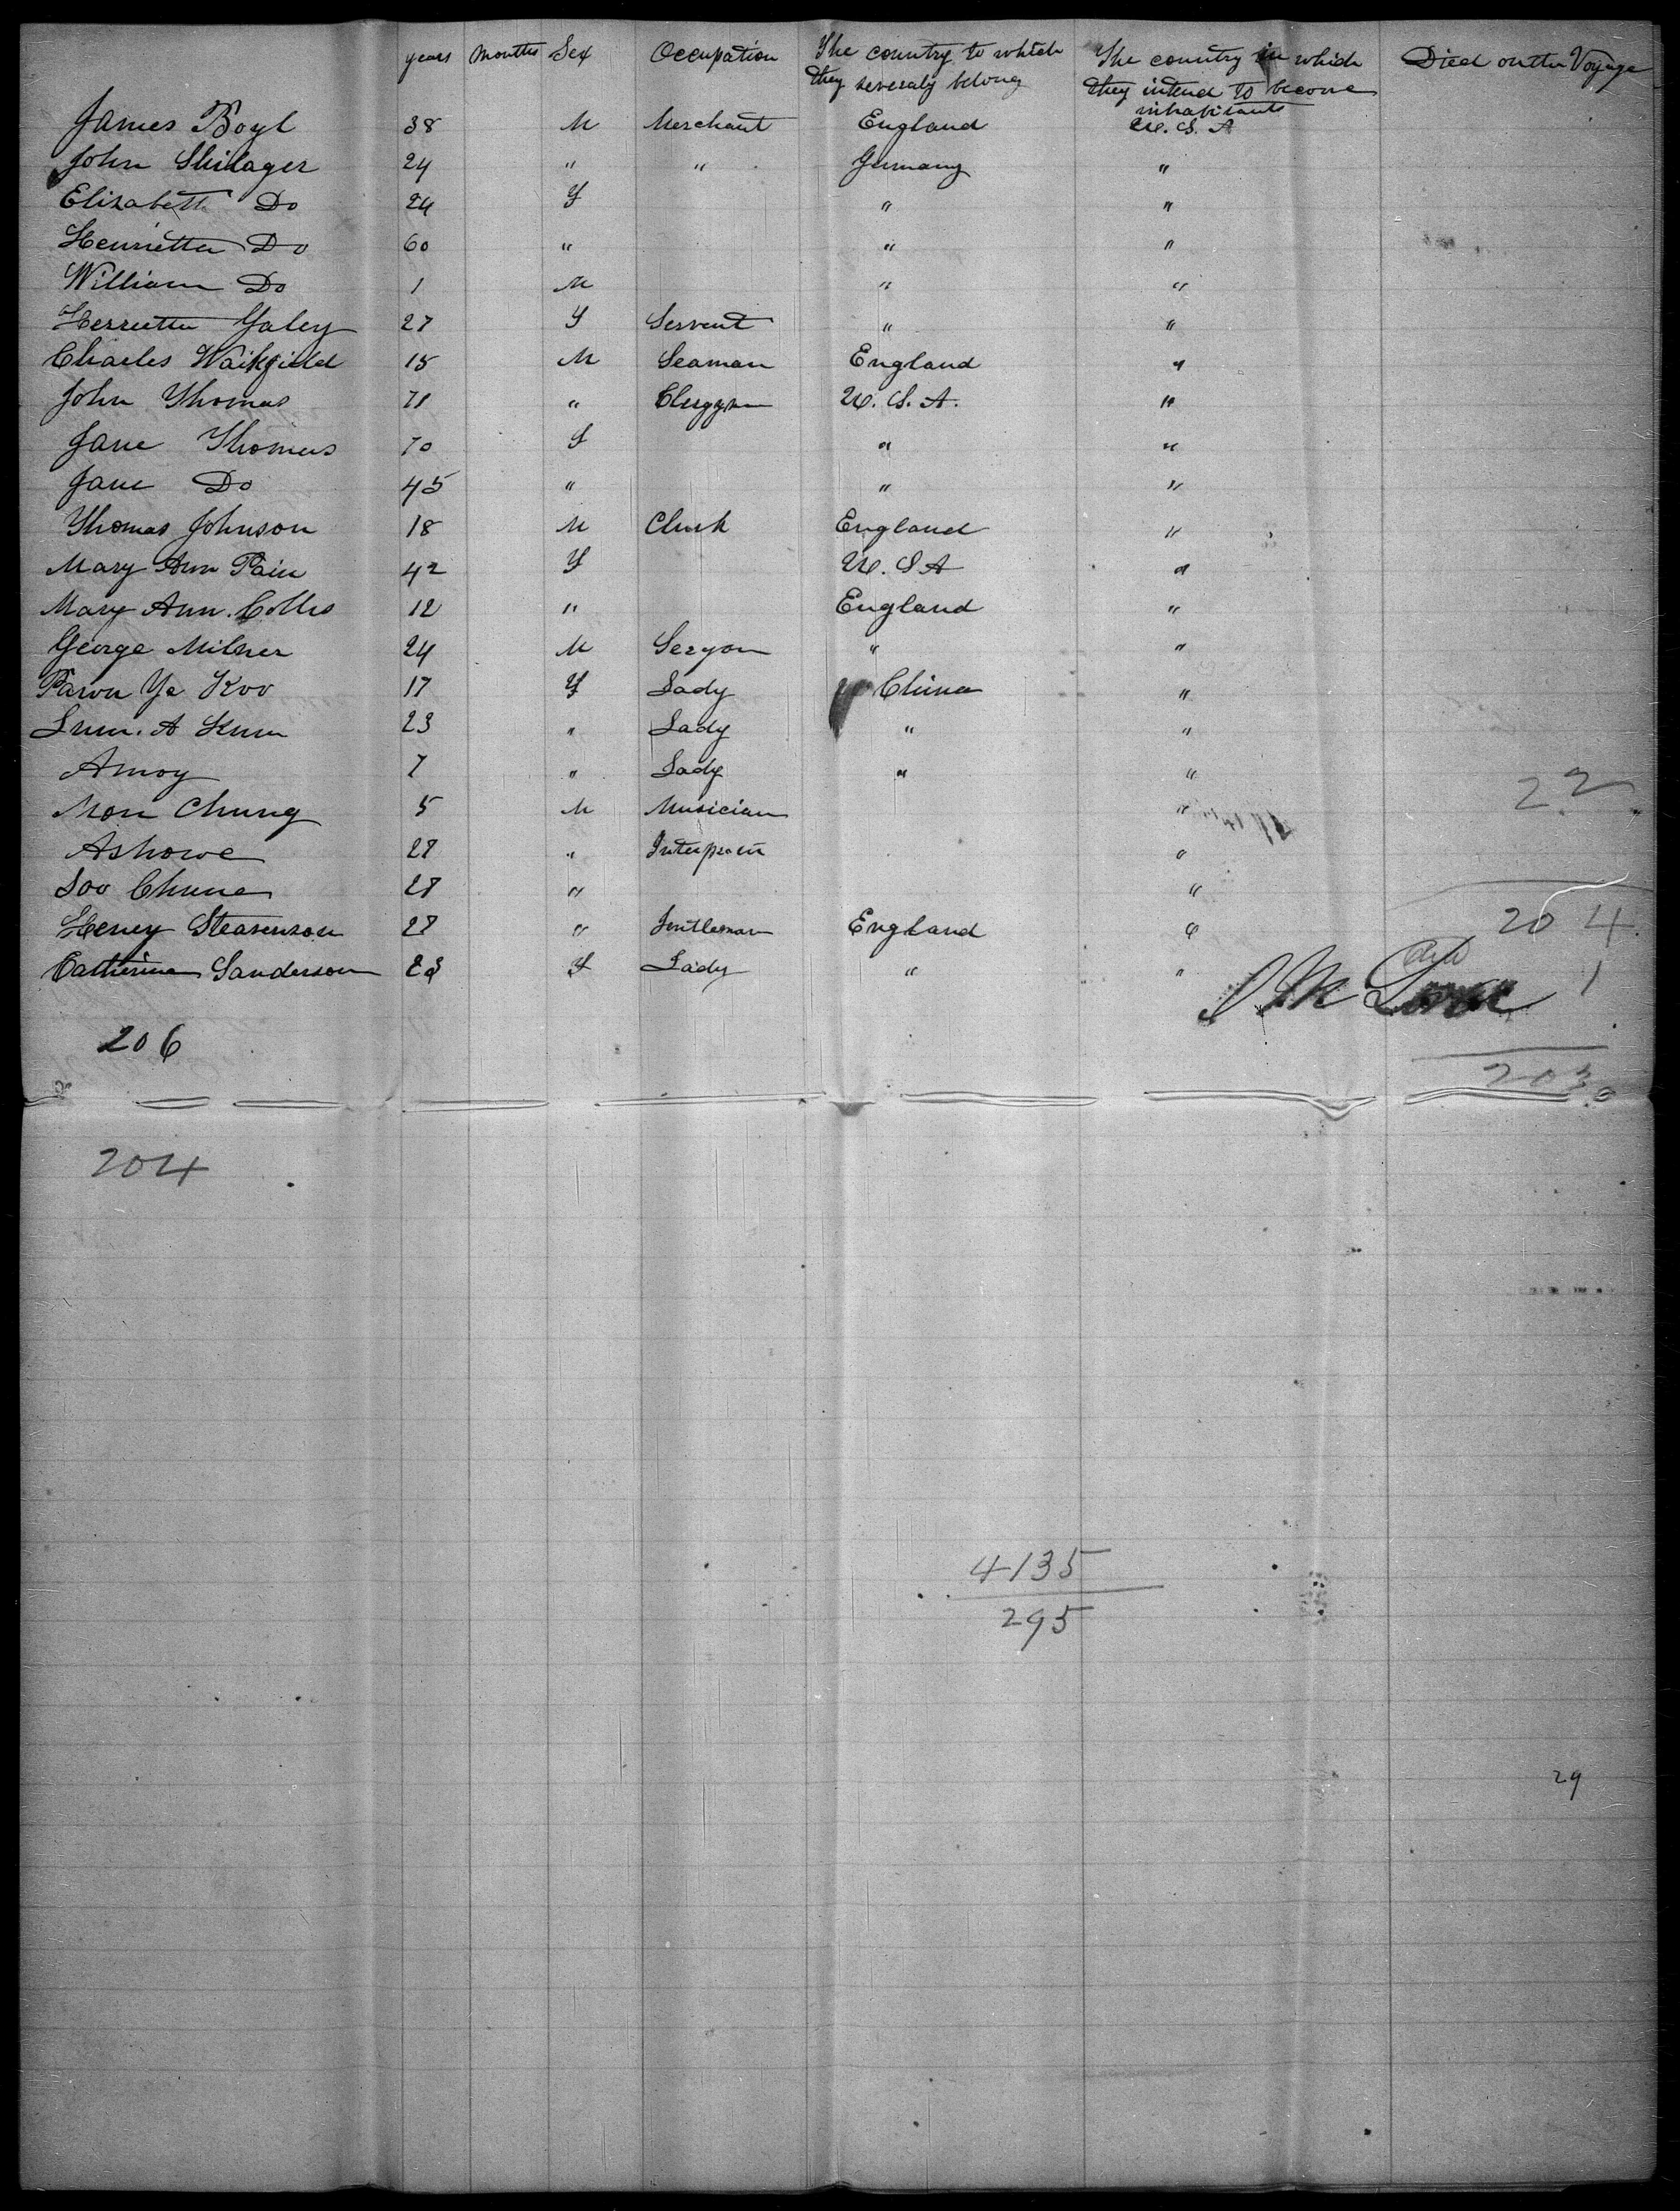 years months Sex Occupation The country to which they severaly belong The country in which they intend to become inhabitants Died on the Voyage
James Boyl 38 M Merchant England U. S. A
John 24 " " Germany "
Elizabeth Do 24 F " "
Henrietta Do 60 " " "
William Do 1 M " "
27 F Servent " "
Charles Waikfield 15 M Seaman England "
John Thomas 71 " U. S. A. "
Jane Thomas 70 F " "
Jane Do 45 " " "
Thomas Johnson 18 M Clerk England "
Mary Ann Pain 42 F U. S A "
Mary Ann. 12 " England "
George Milner 24 M " "
Pawn Ye Koo 17 F Lady China "
23 " Lady " "
Amoy 7 " Lady " "
Mon Chung 5 M Musician "
22
Ashowe 28 " "
Soo 28 " "
Heney Steavenson 28 " Gentleman England "
204
Catherine Sanderson 23 F Lady " "
1
206
203
204
4135
295
29